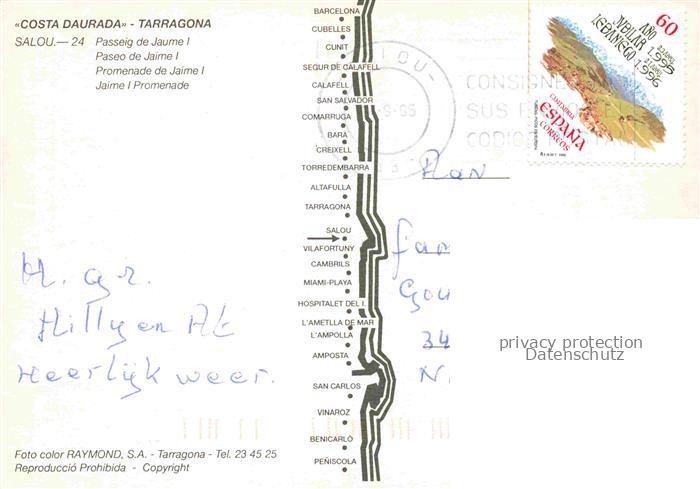 «COSTA DAURADA» - TARRAGONA
SALOU.— 24 Passeig de Jaume I
Paseo de Jaime I
Promenade de Jaime I
Jaime I Promenade
BARCELONA
CUBELLES
CUNIT
SEGUR DE CALAFELL
CALAFELL
SAN SALVADOR
COMARRUGA
BARA
CREIXELL
TORREDEMBARRA
ALTAFULLA
TARRAGONA
SALOU
VILAFORTUNY
CAMBRILS
MIAMI-PLAYA
HOSPITALET DEL I.
L'AMETLLA DE MAR
L'AMPOLLA
AMPOSTA
SAN CARLOS
VINAROZ
BENICARLÓ
PEÑISCOLA
60
AÑO
JUBILAR
LEBANIEGO
1.995
1.996
CANTABRIA
ESPAÑA
CORREOS
CONSIGNE
SUS
CODIGO
fam
34
N.
H. gr.
Heerlijk weer.
privacy protection
Datenschutz
Foto color RAYMOND, S.A. - Tarragona - Tel. 23 45 25
Reproducció Prohibida - Copyright